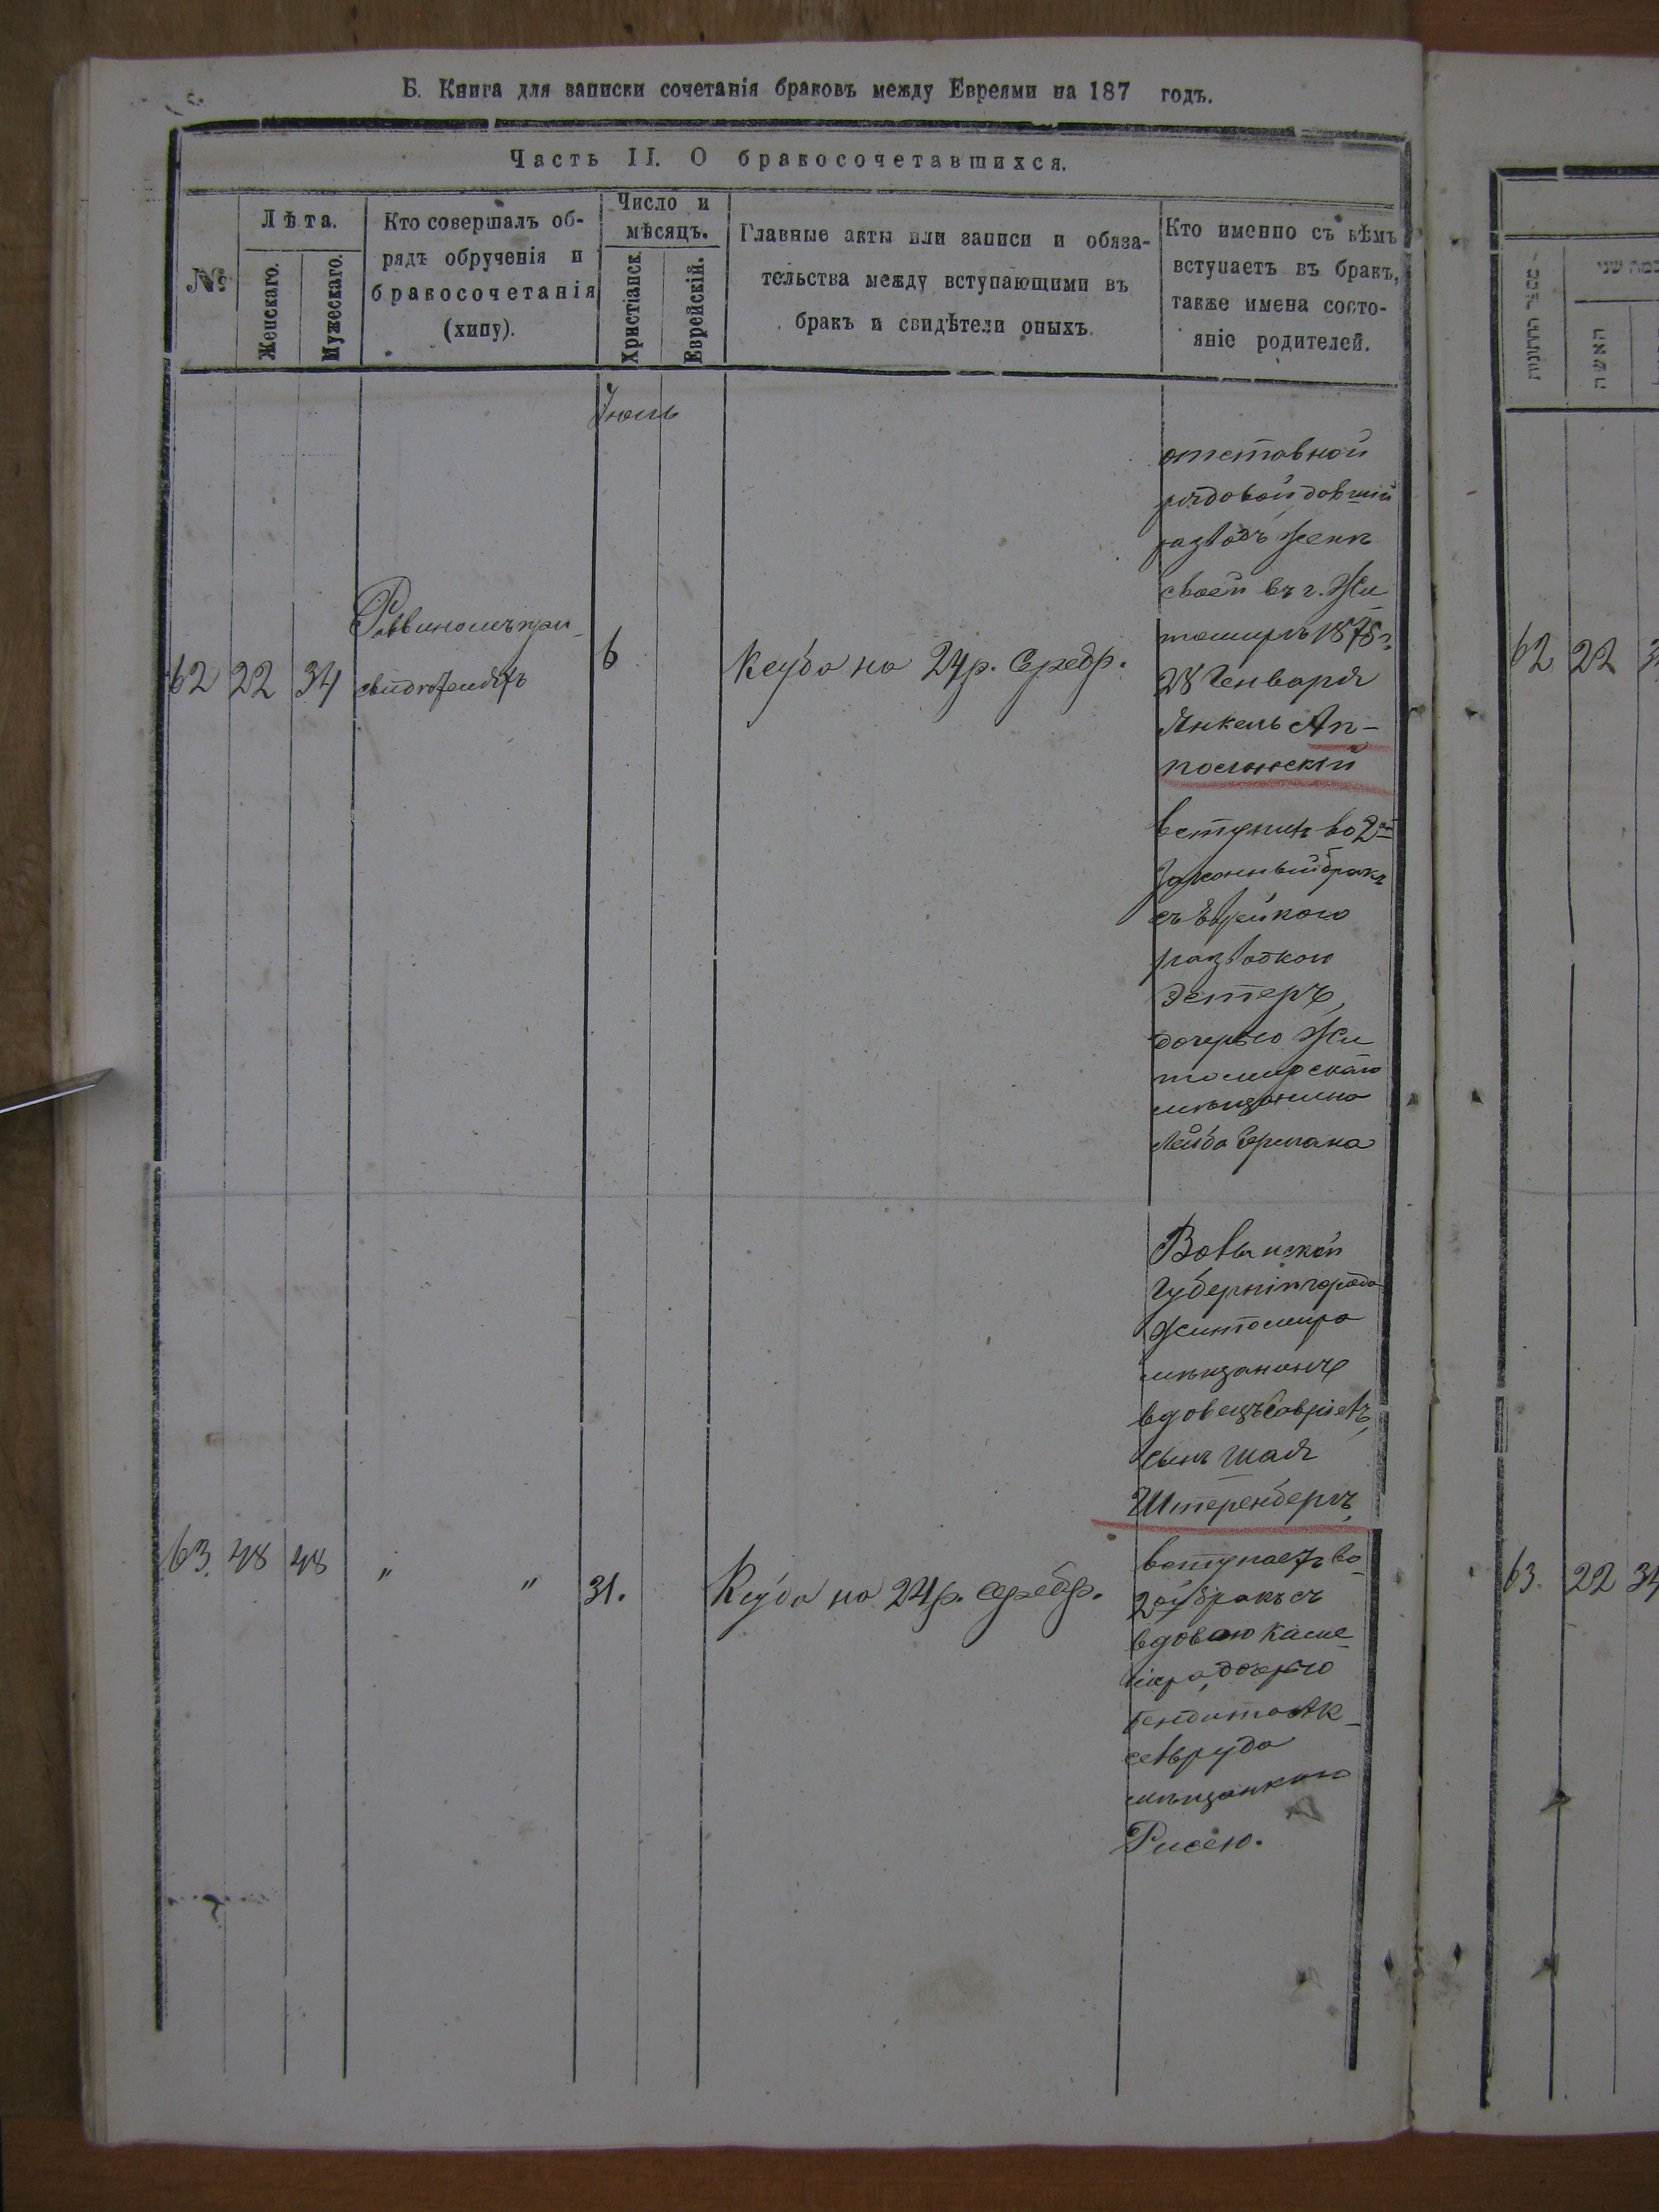 Б. Книга для записки сочетанія браковъ между Евреями на 187 годъ.
Часть II. О бракосочетавшихся.
№
Лѣта.
Женскаго.
Мужескаго.
Кто совершалъ об-
рядъ обрученія и
бракосочетанія
(хипу).
Число и
мѣсяцъ.
Христіанск.
Еврейскій.
Главные акты или записи и обяза-
тельства между вступающими въ
бракъ и свидѣтели оныхъ.
Кто именно съ кѣмъ
вступаетъ въ бракъ,
также имена состо-
яніе родителей.
Іюль
62 22 34
Раввиномъ
6
Кеуба на 24 р. Серебр.
отставной
рядовой давшій
разводъ женѣ
своей въ г. Жи
томирѣ 1875 г.
28 Генваря
Янкель Ап-
полонскій
вступил во 2ой
законный бракъ
съ Еврейкою
разводкою
Эстеръ,
дочерью Жи
томирскаго
мѣщанина
Лейба
63. 48 48 " " 31.
Кеуба на 24 р. серебр.
Волынской
Губерніи города
Житомира
мѣщанинъ
вдовецъ Гавріелъ,
сынъ Шая
Штеренбергъ,
вступаетъ во
2ой бракъ съ
вдовою
дочерью
мѣщанкою
Рисею.
מספר החתונות
כמה שני
האשה
62 22
63. 22 34